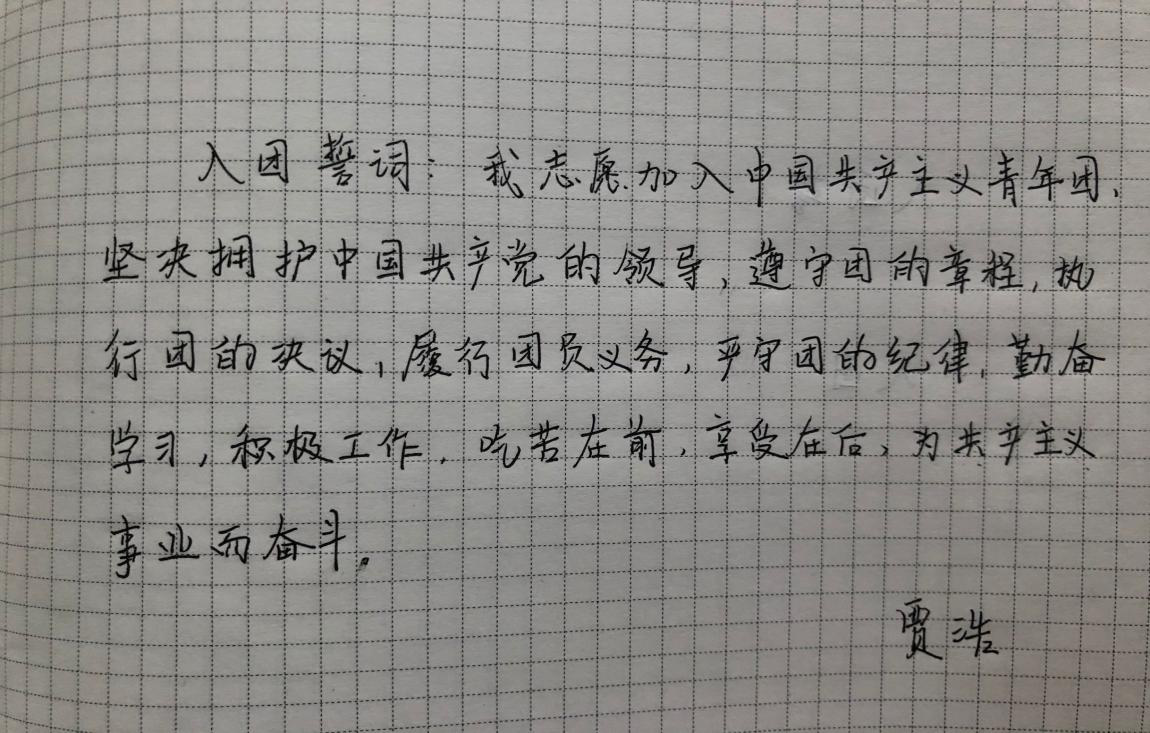 入团誓词：我志愿加入中国共产主义青年团，
坚决拥护中国共产党的领导，遵守团的章程，执
行团的决议，履行团员义务，严守团的纪律，勤奋
学习，积极工作，吃苦在前，享受在后，为共产主义
事业而奋斗。
贾浩